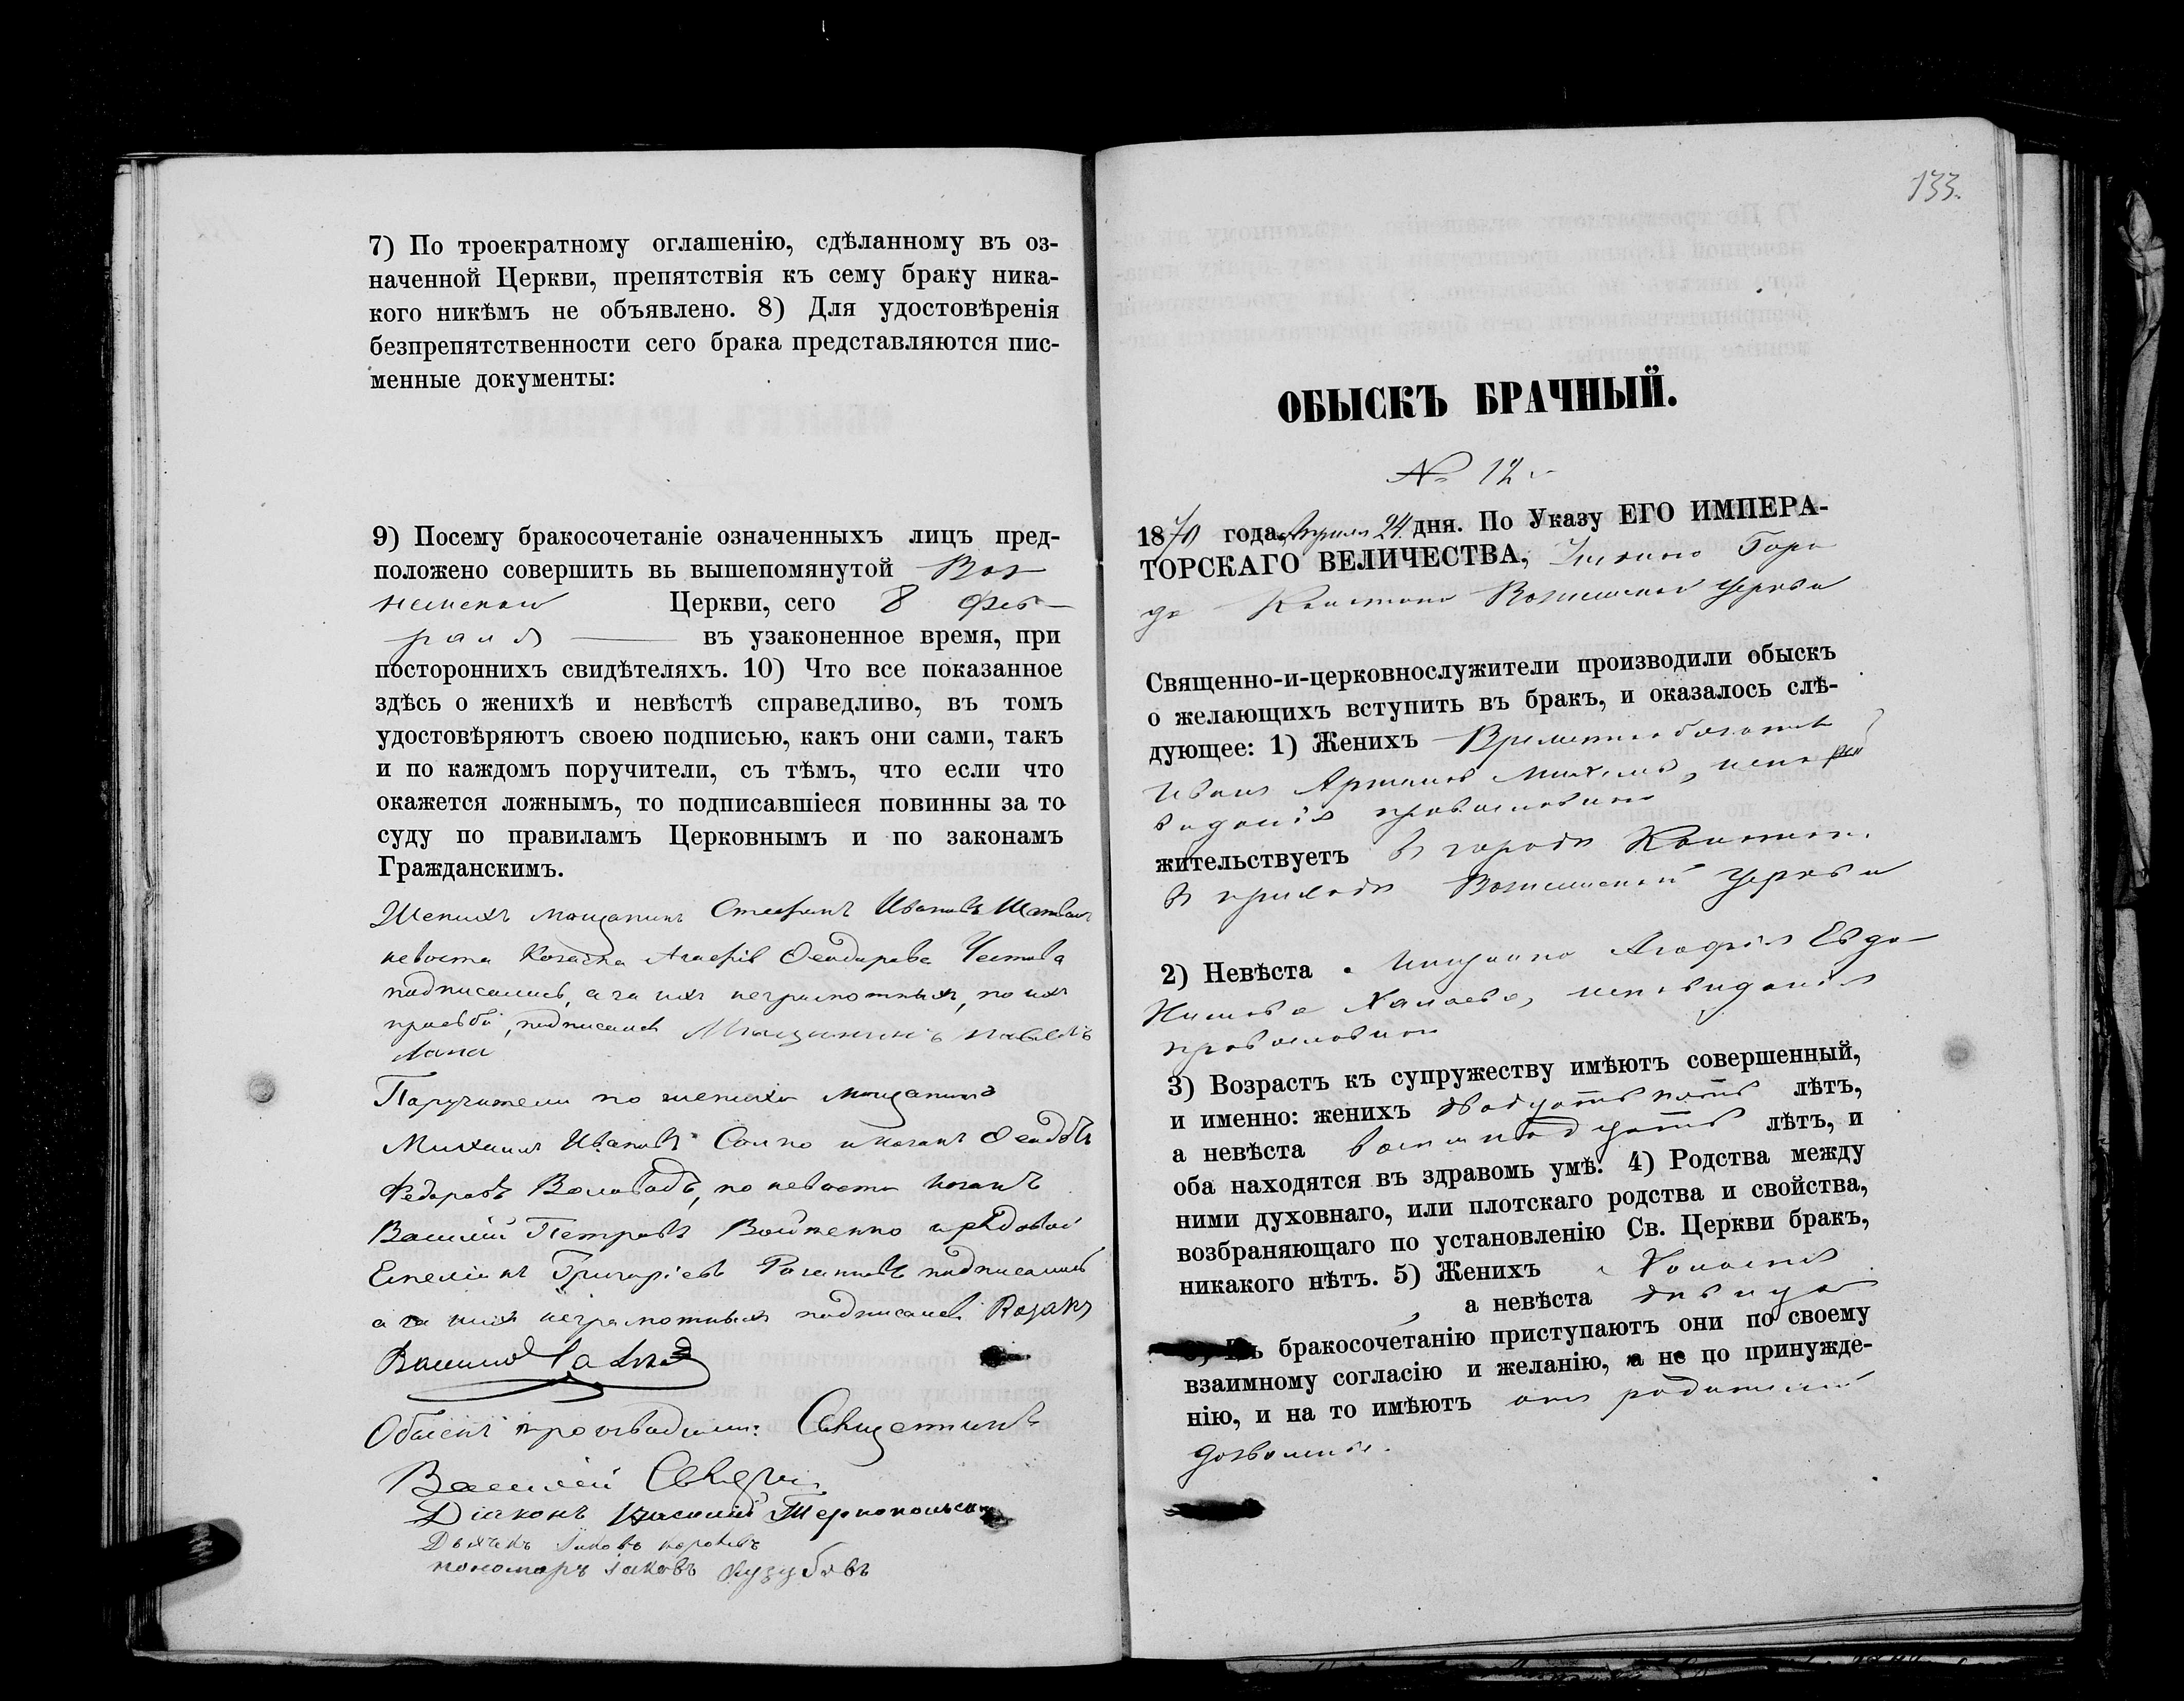 7) По троекратному оглашенію, сдѣланному въ оз-
наченной Церкви, препятствія къ сему браку ника-
кого никѣмъ не объявлено. 8) Для удостовѣренія
безпрепятственности сего брака представляются пис-
менные документы:
9) Посему бракосочетаніе означенныхъ лицъ пред-
положено совершить вь вышепомянутой Воз
несенской Церкви, сего 8 Фев-
раля въ узаконенное время, при
постороннихъ свидѣтеляхъ. 10) Что все показанное
здѣсь о женихѣ и невѣстѣ справедливо, въ томъ
удостовѣряютъ своею подписью, какъ они сами, такъ
и по каждомъ поручители, съ тѣмъ, что если что
окажется ложнымъ, то подписавшіеся повинны за то
суду по правиламъ Церковнымъ и по законамъ
Гражданскимъ.
Женихъ мѣщанинъ Стефанъ Ивановъ
невѣста Козачка Агафія Феодорова
подписались, а за ихъ неграмотныхъ, по ихъ
прозьбѣ, подписался Мѣщанинъ
Поручители по женихѣ мѣщанинъ
Михаилъ Ивановъ и козакъ
Федоровъ по невѣсте козакъ
Василій Петровъ Войтенко и рядовой
Григоріевъ подписались
а за нихъ неграмотныхъ подписался Козакъ
Василій
Обыскъ производили: Священникъ
Василій
Діаконъ Василій Тернопольскій
Дьячекъ Іаковъ
пономарь Іаковъ
133.
ОБЫСКЪ БРАЧНЫЙ.
№ 12
1870 года Апрѣля 24 дня. По Указу ЕГО ИМПЕРА-
ТОРСКАГО ВЕЛИЧЕСТВА, Горо
да Вознесенской Церкви
Священно-и-церковнослужители производили обыскъ
о желающихъ вступить въ бракъ, и оказалось слѣ-
дующее: 1) Женихъ Временно
Иванъ испо
веданія православнаго
жительствуетъ въ городѣ
въ приходѣ Вознесенской Церкви
2) Невѣста Агафія Евдо
кимова исповиданія
православнаго
3) Возрастъ къ супружеству имѣютъ совершенный,
и именно: женихъ двадцать пять лѣтъ,
а невѣста восимнадцать лѣтъ, и
оба находятся въ здравомь умѣ. 4) Родства между
ними духовнаго, или плотскаго родства и свойства,
возбраняющаго по установленію Св. Церкви бракъ,
никакого нѣтъ. 5) Женихъ Холостъ
, а невѣста дѣвица
бракосочетанію приступаютъ они по своему
взаимному согласію и желанію, а не по принужде-
нію, и на то имѣютъ отъ родителей
дозволеніе.